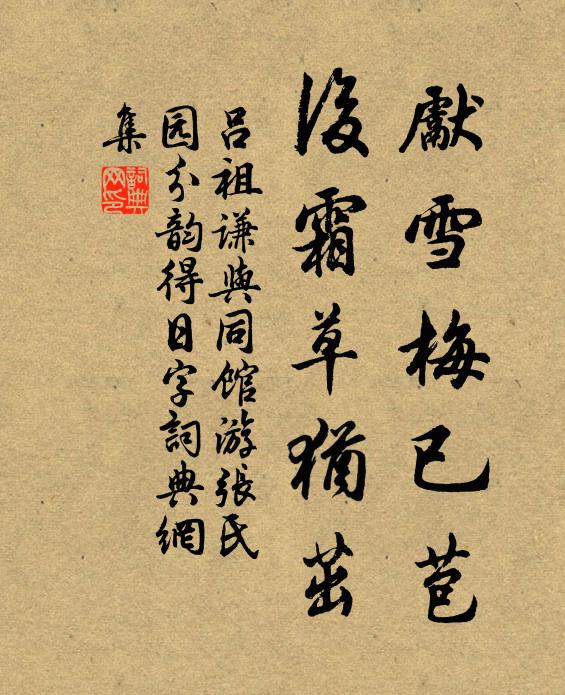 獻雪梅已苞
後霜草猶茁
吕祖谦與同館游張氏
园分韵得日字詞典網
集
詞典網印